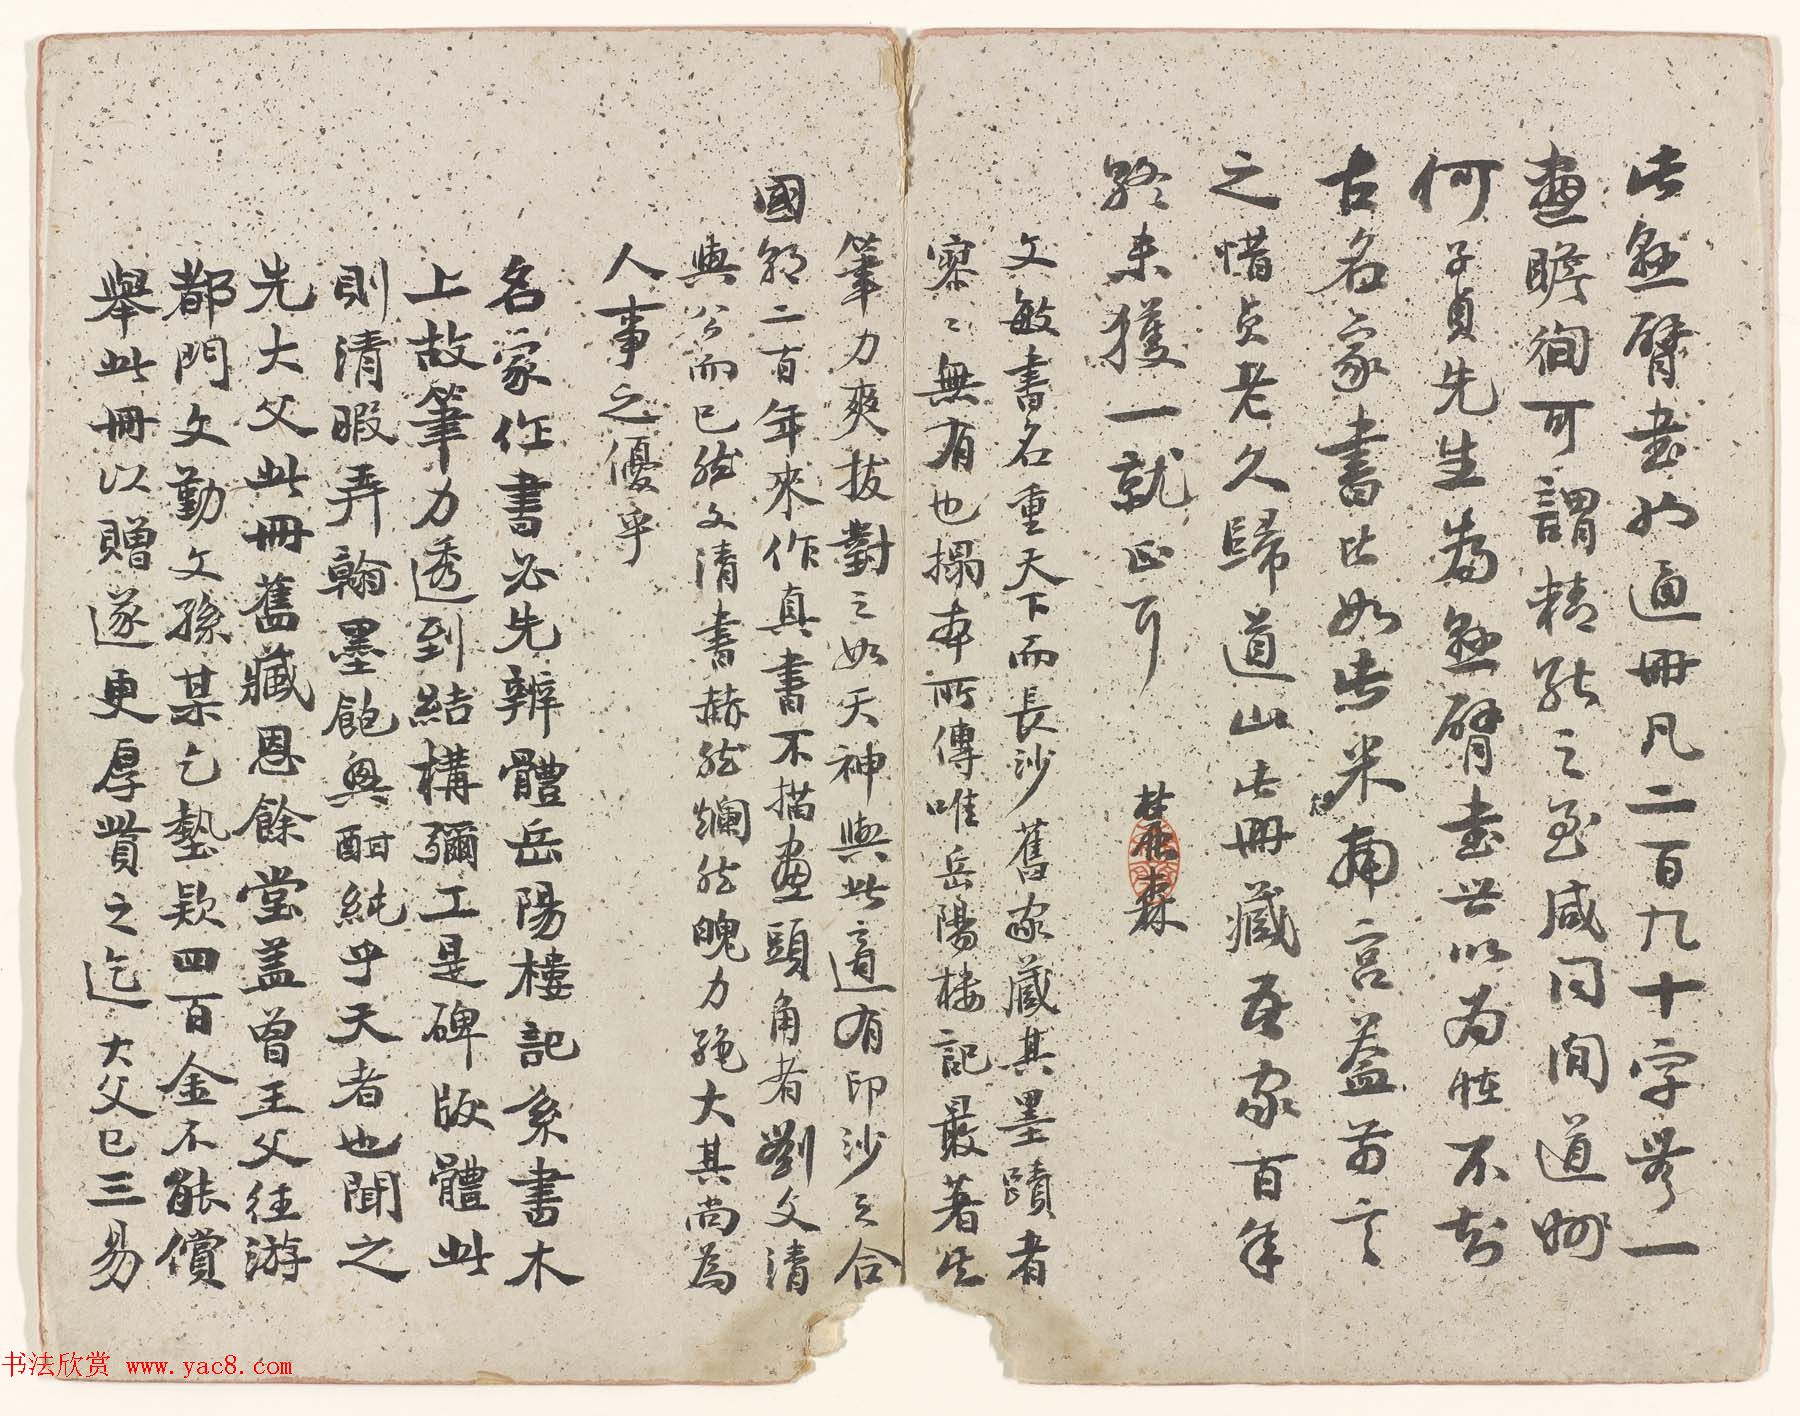 此懸臂書也通冊凡二百九十字無一
畫瞻徇可謂精能之至咸同間道州
何子貞先生為懸臂書世以為怪不知
古名家書比比如此米南宮蓋嘗言
之惜貞老久歸道山此冊藏吾家百年
終未獲一就正耳
麓森
文敏書名重天下而長沙舊家藏其墨蹟者
寥寥無有也搨本所傳唯岳陽樓記最著其
筆力爽拔對之如天神與此適有印沙之合
國朝二百年來作真書不描畫頭角者劉文清
與公而已然文清書赫然爛然魄力絕大其尚為
人事之優乎
名家作書必先辨體岳陽樓記系書木
上故筆力透到結構彌工是碑版體此
則清暇弄翰墨飽興酣純乎天者也聞之
先大父此冊舊藏恩餘堂蓋曾王父往游
都門文勤文孫某乞墊款四百金不能償
舉此冊以贈遂更厚貲之迄大父已三易
书法欣赏 www.yac8.com